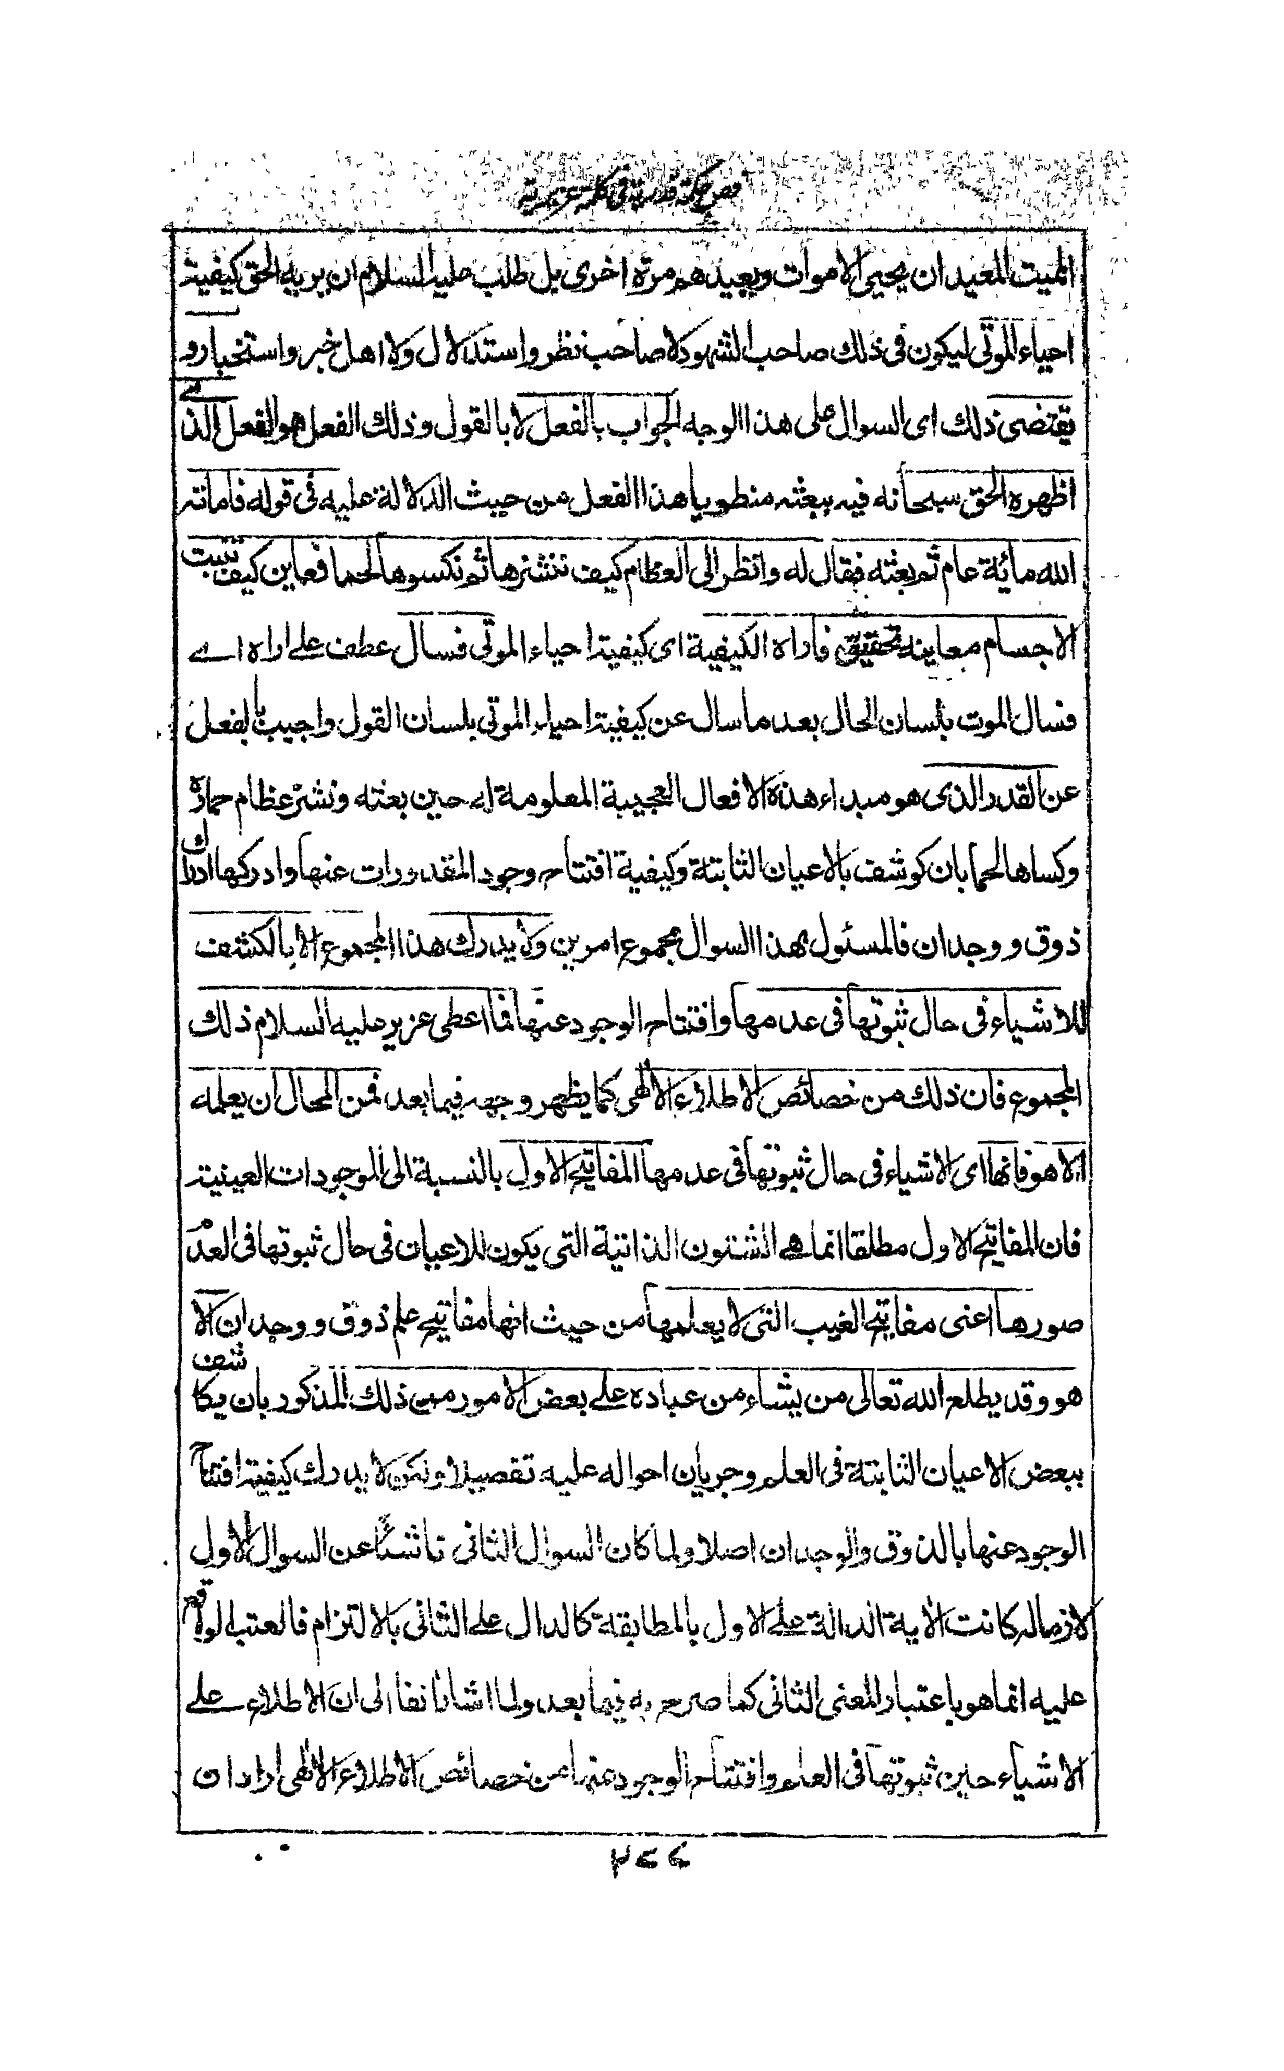 فص حكمة قدرية في كلمة عزيرية
المميت المعيد ان يحيى الاموات ويعيدهم مرة اخرى بل طلب عليه السلام ان يريه الحق كيفية
احياء الموتى ليكون فى ذلك صاحب الشهود لا صاحب نظر واستدلال ولا اهل خبر واستخبار و
يقتضى ذلك اى السوال على هذا الوجه الجواب بالفعل لا بالقول وذلك الفعل هو الفعل الذى
اظهره الحق سبحانه فيه ببعثه منطويا هذا الفعل من حيث الدلالة عليه فى قوله فاماته
الله مائة عام ثم بعثه فقال له وانظر الى العظام كيف ننشزها ثم نكسوها لحما فعاين كيف تنبت
الاجسام معاينة تحقيق فاراه الكيفية اى كيفية احياء الموتى فسال عطف على اراه اے
فسال الموت بلسان الحال بعد ما سال عن كيفية احياء الموتى بلسان القول واجيب بالفعل
عن القدر الذى هو مبداء هذه الافعال العجيبة المعلومة له حين بعثه ونشز عظام حماره
وكساها لحما بان كوشف بالاعيان الثابتة وكيفية افتتاح وجود المقدورات عنها وادركها ادراك
ذوق ووجدان فالمسئول بهذا السوال مجموع امرين ولا يدرك هذا المجموع الا بالكشف
للاشياء فى حال ثبوتها فى عدمها وافتتاح الوجود عنها فما اعطى عزير عليه السلام ذلك
المجموع فان ذلك من خصائص الاطلاع الالهى كما يظهر وجهه فيما بعد فمن المحال ان يعلمه
الا هو فانها اى الاشياء فى حال ثبوتها فى عدمها المفاتيح الاول بالنسبة الى الموجودات العينية
فان المفاتيح الاول مطلقا انما هے الشئون الذاتية التى يكون للاعيان فى حال ثبوتها فى العدم
صورها اعنى مفاتيح الغيب التى لا يعلمها من حيث انها مفاتيح علم ذوق ووجدان الا
هو وقد يطلع الله تعالى من يشاء من عباده علے بعض الامور من ذلك المذكور بان يكاشف
ببعض الاعيان الثابتة فى العلم وجريان احواله عليه تفصيلا ولكن لا يدرك كيفية افتتاح
الوجود عنها بالذوق والوجدان اصلا ولما كان السوال الثانى ناشئا عن السوال الاول
لازما له كانت الاية الدالة علے الاول بالمطابقة كالدال علے الثانى بالالتزام فالعتب الواقع
عليه انما هو باعتبار المعنى الثانى كما صرح به فيما بعد ولما اشار انفا الى ان الاطلاع علے
الاشياء حين ثبوتها فى العلم وافتتاح الوجود عنها من خصائص الاطلاع الالهى اراد ان
٢٧٧